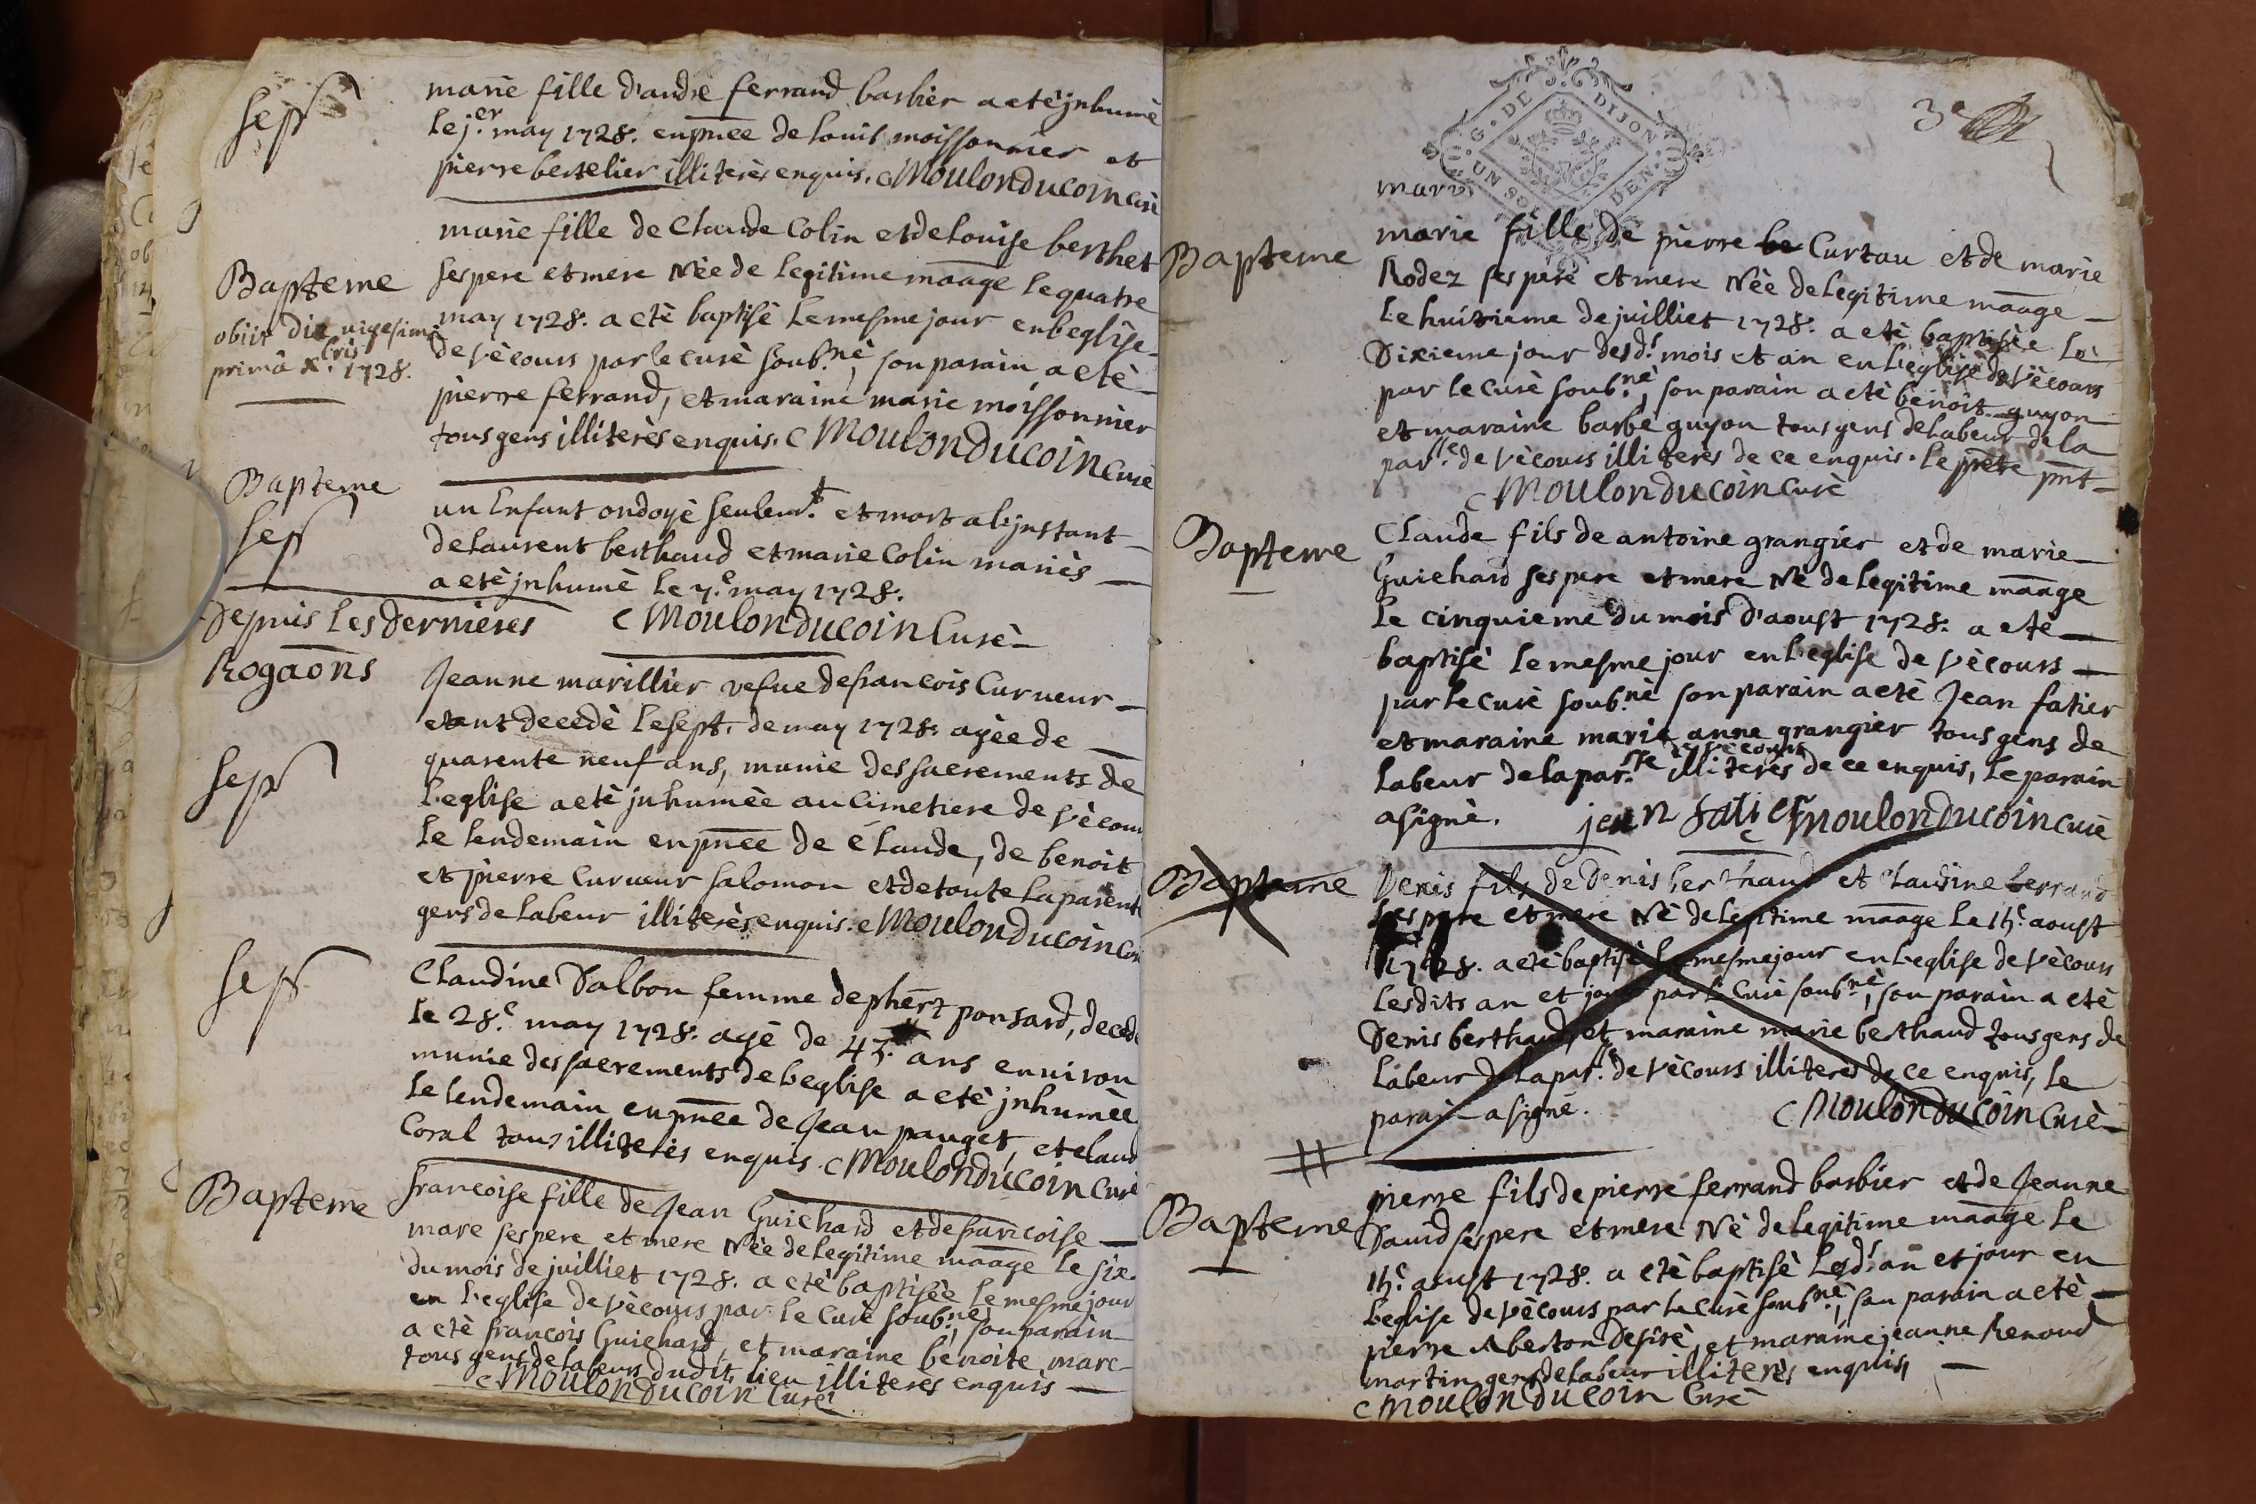 sep
marie fille d'andre ferrand barbier a etè jnhumè
le j.er may 1728. en pnce de louis moissonnier et
pierre bertelier illiterès enquis. C Moulonducoin curè
Bapteme
marie fille de Claude Colin et de louise berthet
ses pere et mere Nèe de legitime maage le quatre
may 1728. a etè baptisè le mesme jour en leglise
de vècours par le curè soub.nè, son parain a etè
pierre ferrand, et maraine marie moissonnier
tous gens illiterès enquis. C Moulonducoin Curè
obiit die vigesima
primâ x.bris 1728.
Bapteme
sep
un Enfant ondoyè seulem.t et mort a linstant
de laurent berthaud et marie Colin mariès
a etè jnhumè le 7.e may 1728.
C Moulonducoin Curè
Depuis les dernieres
Rogaons
sep
Jeanne marillier vefue de francois Curueur
etant decedè le sept. de may 1728. agèe de
quarente neuf ans, munie des sacrements de
leglise a etè jnhumèe au cimetiere de vècour
le lendemain en pnce de Claude, de benoit
et pierre Curueur salomon et de toute la parent
gens de labeur illiterès enquis. C Moulonducoin Cur
sep
Claudine Dalbon femme de phert ponsard, decede
le 28.e may 1728. agè de 45. ans enuiron
munie des sacrements de leglise a etè jnhumèe
le lendemain en pnce de Jean pauget, et claud
Coral tous illiterès enquis. C Moulonducoin Curè
Bapteme
francoise fille de Jean Guichard et de francoise
mare ses pere et mere Nèe de legitime maage le six.
du mois de juilliet 1728. a etè baptisèe le mesme jour
en leglise de vècours par le Curè soub.nè, son parain
a etè francois Guichard, et maraine benoite mare
tous gens de labeur dudit lieu illiterès enquis
C Moulonducoin Curè
3e
G. DE DIJON
UN SOL DEN.
marie
Bapteme
marie fille de pierre be Curtau et de marie
Rodez ses pere et mere Nèe de legitime maage
le huitieme de juilliet 1728. a etè baptisèe le
Dixieme jour desd.s mois et an en leglise de vècours
par le curè soub.nè, son parain a etè benoit guyon
et maraine barbe guyon tous gens de labeur de la
par.lle de vècours illiterès de ce enquis. le prete pnt
C Moulonducoin Curè
Bapteme
Claude fils de antoine grangier et de marie
Guichard ses pere et mere Nè de legitime maage
le cinquieme du mois d'aoust 1728. a etè
baptisè le mesme jour en leglise de vècours
par le curè soub.nè son parain a etè Jean fatier
et maraine marie anne grangier tous gens de
de vecours
labeur de la par.lle illiterès de ce enquis, le parain
a signè. jean fatier C Moulonducoin curè
Bapteme
Denis fils de Denis berthaud et Claudine ferrand
ses pere et mere Nè de legitime maage le 15.e aoust
1728. a etè baptisè le mesme jour en leglise de vècours
lesdits an et jour par le Curè soub.nè, son parain a etè
Denis berthaud, et maraine marie berthaud tous gens de
labeur de la par.lle de vècours illiterès de ce enquis, le
parain a signé. C Moulonducoin Curè
Bapteme
pierre fils de pierre ferrand barbier et de Jeanne
Dauid ses pere et mere Nè de legitime maage le
15.e aoust 1728. a etè baptisè lesd.s an et jour en
leglise de vècours par le curè soub.nè, son parain a etè
pierre Aberton Desirè, et maraine jeanne Renoud
martin gens de labeur illiterès enquis,
C Moulonducoin Curè